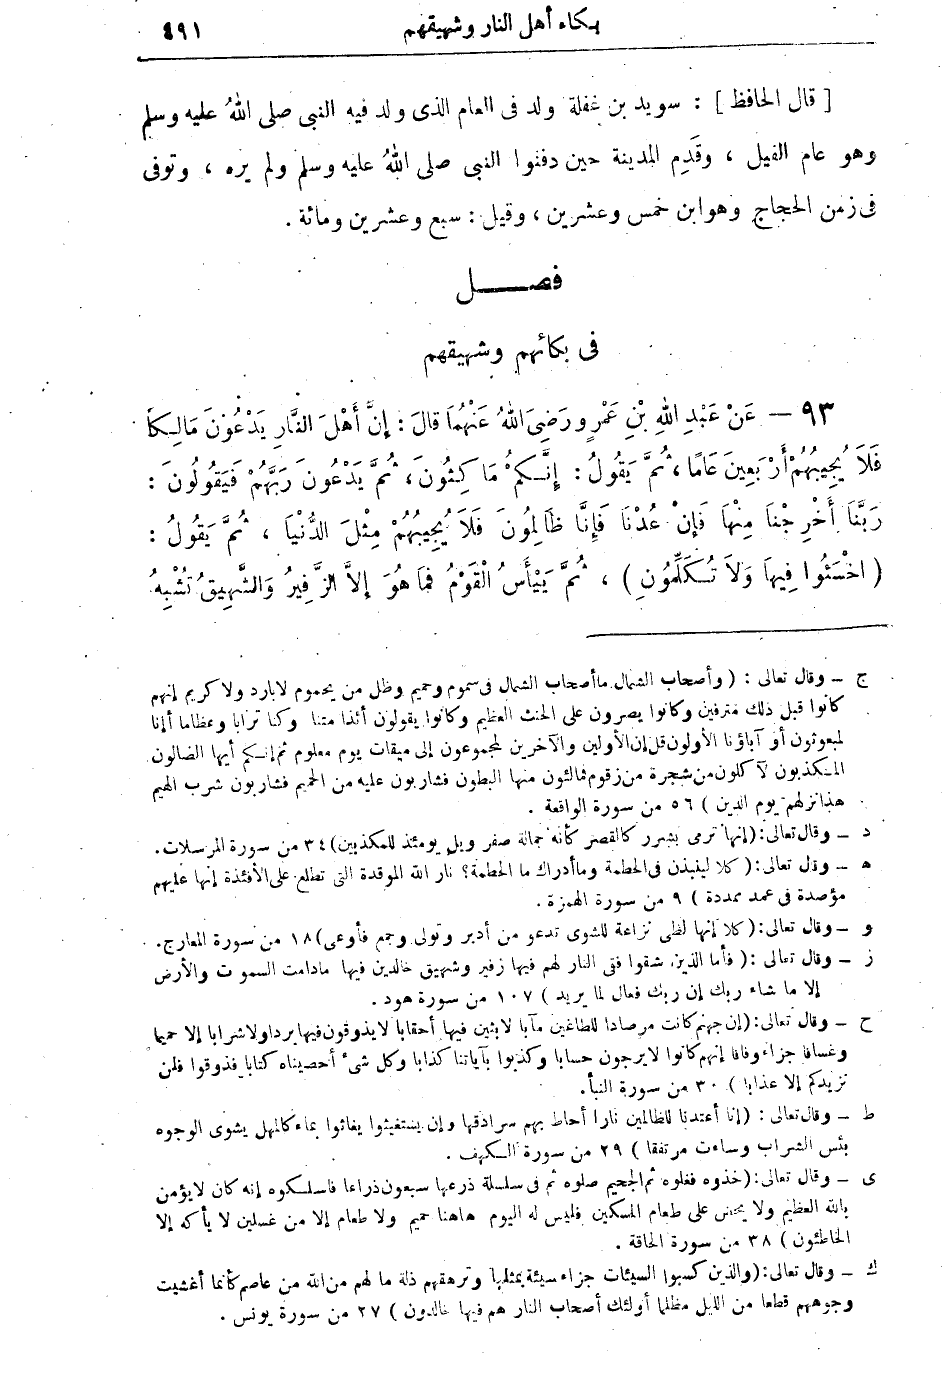 بكاء أهل النار وشهيقهم ٤٩١
[ قال الحافظ ] : سويد بن غفلة ولد فى العام الذى ولد فيه النبى صلى اللهُ عليه وسلم
وهو عام الفيل ، وقَدِم المدينة حين دفنوا النبى صلى اللهُ عليه وسلم ولم يره ، وتوفى
فى زمن الحجاج وهوابن خمس وعشرين ، وقيل : سبع وعشرين ومائة .
فصـــــل
فى بكائهم وشهيقهم
٩٣ — عَنْ عَبْدِ اللهِ بْنِ عَمْرٍو رَضِىَ اللهُ عَنْهُمَا قالَ : إِنَّ أَهْلَ النَّارِ يَدْعُونَ مَالِكاً
فَلَا يُجِيبُهُمْ أَرْبَعِينَ عَامًا ، ثُمَّ يَقُولُ : إِنَّكُمْ مَا كِثُونَ ، ثُمَّ يَدْعُونَ رَبَّهُمْ فَيَقُولُونَ :
رَبَّنَا أَخْرِجْنَا مِنْهَا فَإِنْ عُدْنَا فَإِنَّا ظَالِمُونَ فَلَا يُجِيبُهُمْ مِثْلَ الدُّنْيَا ، ثُمَّ يَقُولُ :
( اخْسَئُوا فِيهَا وَلاَ تُكَلِّمُونِ ) ، ثُمَّ يَيْأَسُ الْقَوْمُ فَمَا هُوَ إِلاَّ الزَّفِيرُ وَالشَّهِيقُ تُشْبِهُ
ج – وقال تعالى : ( وأصحاب الشمال ماأصحاب الشمال فى سموم وحميم وظل من يحموم لابارد ولا كريم إنهم
كانوا قبل ذلك مترفين وكانوا يصرون على الحنث العظيم وكانوا يقولون أئذا متنا وكنا ترابا وعظاما أإنا
لمبعوثون أو آباؤنا الأولون قل إن الأولين والآخرين لمجموعون إلى ميقات يوم معلوم ثم إنكم أيها الضالون
المكذبون لآكلون من شجرة من زقوم فمالئون منها البطون فشاربون عليه من الحميم فشاربون شرب الهيم
هذا نزلهم يوم الدين ) ٥٦ من سورة الواقعة .
د – وقال تعالى : ( إنها ترمى بشرر كالقصر كأنه جمالة صفر ويل يومئذ للمكذبين ) ٣٤ من سورة المرسلات .
ه – وقال تعالى : ( كلا لينبذن فى الحطمة وماأدراك ما الحطمة ؟ نار الله الموقدة التى تطلع على الأفئدة إنها عليهم
مؤصدة فى عمد ممددة ) ٩ من سورة الهمزة .
و – وقال تعالى : ( كلا إنها لظى نزاعة للشوى تدعو من أدبر وتولى وجمع فأوعى ) ١٨ من سورة المعارج .
ز – وقال تعالى : ( فأما الذين شقوا ففى النار لهم فيها زفير وشهيق خالدين فيها مادامت السموات والأرض
إلا ما شاء ربك إن ربك فعال لما يريد ) ١٠٧ من سورة هود .
ح – وقال تعالى : ( إن جهنم كانت مرصادا للطاغين مآبا لابثين فيها أحقابا لايذوقون فيها بردا ولا شرابا إلا حميما
وغساقا جزاء وفاقا إنهم كانوا لايرجون حسابا وكذبوا بآياتنا كذابا وكل شىء أحصيناه كتابا فذوقوا فلن
نزيدكم إلا عذابا ) ٣٠ من سورة النبأ .
ط – وقال تعالى : ( إنا أعتدنا للظالمين نارا أحاط بهم سرادقها وإن يستغيثوا يغاثوا بماء كالمهل يشوى الوجوه
بئس الشراب وساءت مرتفقا ) ٢٩ من سورة الكهف .
ى – وقال تعالى : ( خذوه فغلوه ثم الجحيم صلوه ثم فى سلسلة ذرعها سبعون ذراعا فاسلكوه إنه كان لايؤمن
بالله العظيم ولا يحض على طعام المسكين فليس له اليوم هاهنا حميم ولا طعام إلا من غسلين لا يأكله إلا
الخاطئون ) ٣٨ من سورة الحاقة .
ك – وقال تعالى : ( والذين كسبوا السيئات جزاء سيئة بمثلها وترهقهم ذلة ما لهم من الله من عاصم كأنما أغشيت
وجوههم قطعا من الليل مظلما أولئك أصحاب النار هم فيها خالدون ) ٢٧ من سورة يونس .